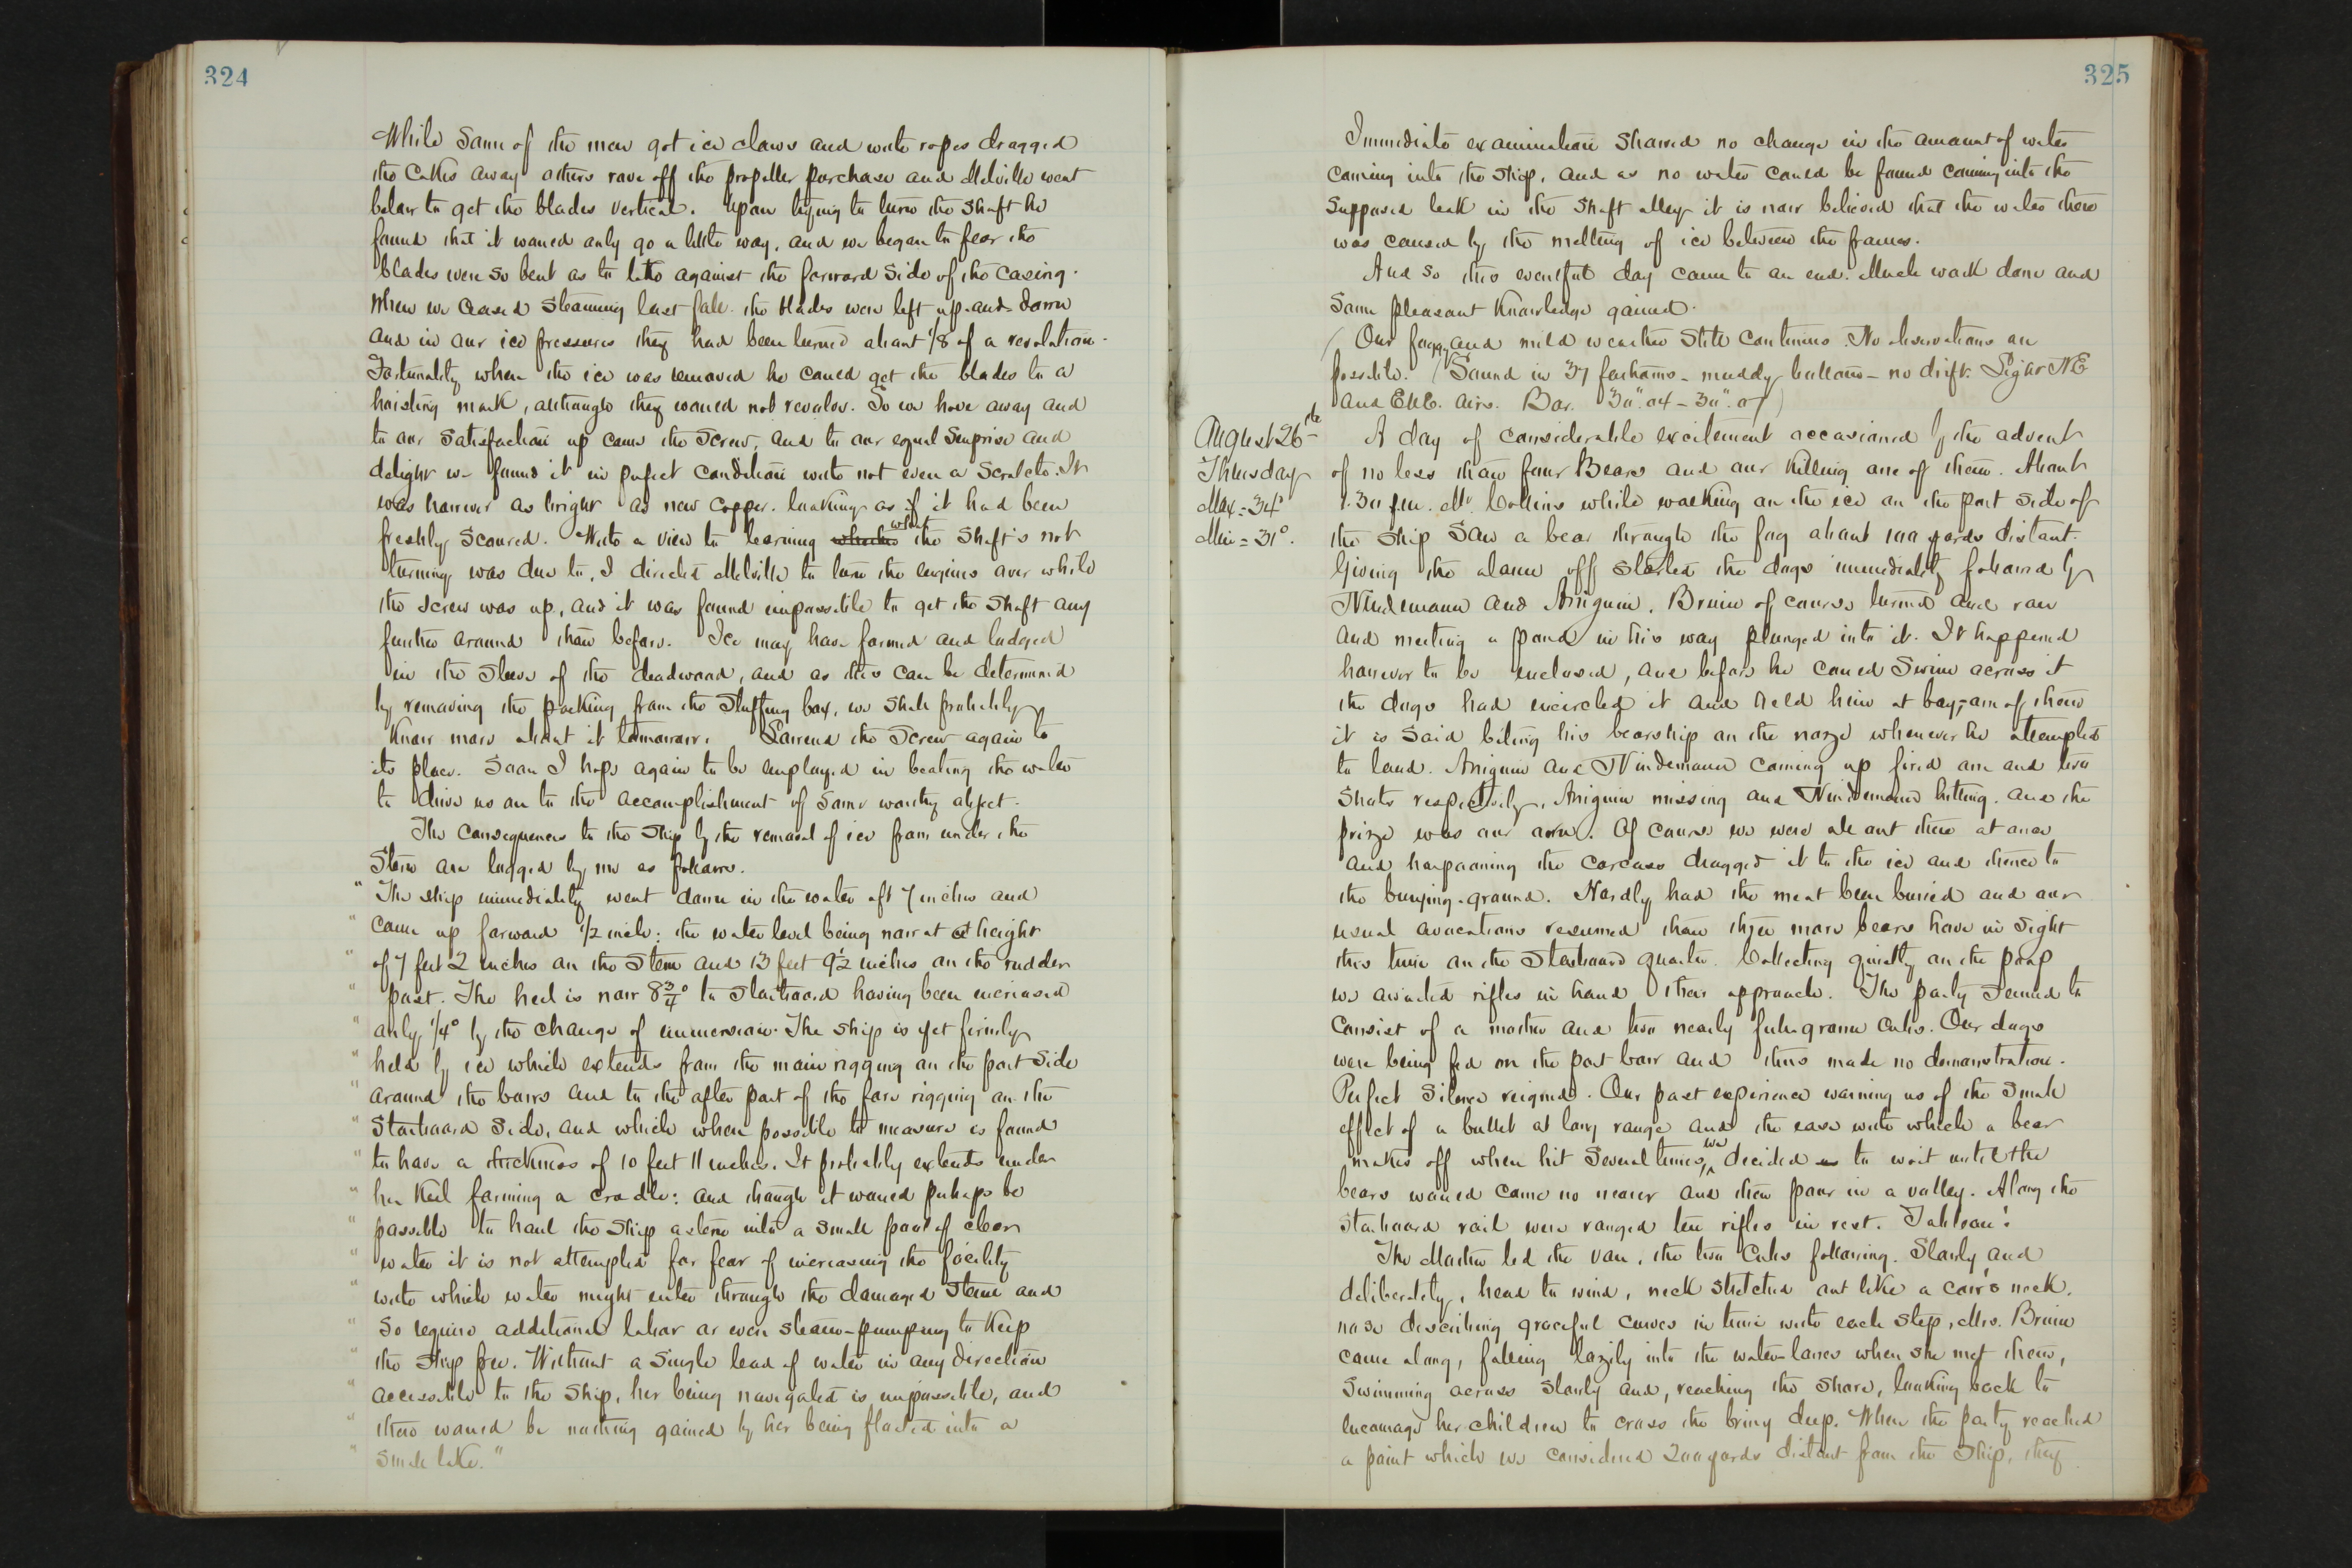 324
While some of the men got ice claws and with ropes dragged
the cakes away others rove off the propeller purchase and Melville went
below to get the blades vertical. Upon trying to turn the shaft he
found that it would only go a little way, and we began to fear the
blades were so bent as to take against the forward side of the casing.
When we ceased steaming last fall the blades were left up-and-down
and in our ice pressures they had been turned about 1/8 of a revolution.
Fortunately when the ice was removed he could get the blades to a
hoisting mark, although they would not revolve. So we hove away and
to our satisfaction up came the screw, and to our equal surprise and
delight we found it in perfect condition with not even a scratch. It
was however as bright as new copper, looking as if it had been
freshly scoured. With a view to learning whether what the shaft's not
turning was due to, I directed Melville to turn the engines over while
the screw was up, and it was found impossible to get the shaft any
further around than before. Ice may have formed and lodged
in the sleeve of the deadwood, and as this can be determined
by removing the packing from the stuffing box, we shall probably
know more about it tomorrow. Lowered the screw again to
its place. Soon I hope again to be employed in beating the water
to drive us on to the accomplishment of some worthy object.
The consequences to the ship by the removal of ice from under the
stern are logged by me as follows.
" The ship immediately went down in the water aft 7 inches and
" came up forward 1/2 inch: the water level being now at a height
" of 7 feet 2 inches on the stem and 13 feet 9 1/2 inches on the rudder
" post. The heel is now 8 3/4° to starboard having been increased
" only 1/4° by the change of immersion. The ship is yet firmly
" held by ice which extends from the main rigging on the port side
" around the bows and to the after part of the fore rigging on the
" starboard side, and which when possible to measure is found
" to have a thickness of 10 feet 11 inches. It probably extends under
" her keel forming a cradle: and though it would perhaps be
" possible to haul the ship astern into a small pool of clear
" water it is not attempted for fear of increasing the facility
" with which water might enter through the damaged stem and
" so require additional labor or even steam-pumping to keep
" the ship free. Without a single lead of water in any direction
" accessible to the ship, her being navigated is impossible, and
" there would be nothing gained by her being floated into a
" small lake."
325
Immediate examination showed no change in the amount of water
coming into the ship, and as no water could be found coming into the
supposed leak in the shaft alley it is now believed that the water there
was caused by the melting of ice between the frames.
And so this eventful day came to an end. Much work done and
some pleasant knowledge gained.
(Our foggy and mild weather still continues. No observations are
possible. (Sound in 37 fathoms - muddy bottom - no drift. Light NE
and ENE. airs. Bar. 30".04 - 30".07)
August 26th
Thursday
Max = 34°
Min = 31°.
A day of considerable excitement occasioned by the advent
of no less than four Bears and our killing one of them. About
1.30 p.m. Mr. Collins while walking on the ice on the port side of
the ship saw a bear through the fog about 100 yards distant.
Giving the alarm off started the dogs immediately followed by
Nindemann and Aniguin. Bruin of course turned and ran
and meeting a pond in his way plunged into it. It happened
however to be enclosed, and before he could swim across it
the dogs had encircled it and held him at bay, - one of them
it is said biting his bearship on the nose whenever he attempted
to land. Aniguin and Nindemann coming up fired one and two
shots respectively, Aniguin missing and Nindemann hitting. and the
prize was our own. Of course we were all out there at once
and harpooning the carcass dragged it to the ice and thence to
the burying-ground. Hardly had the meat been buried and our
usual avocations resumed than three more bears hove in sight
this time on the starboard quarter. Collecting quietly on the poop
we awaited rifles in hand their approach. The party seemed to
consist of a mother and two nearly full-grown cubs. Our dogs
were being fed on the port bow and thus made no demonstration.
Perfect silence reigned. Our past experience warning us of the small
effect of a bullet at long range and the ease with which a bear
makes off when hit several times, we decided to wait until the
bears would come no nearer and then pour in a volley. Along the
starboard rail were ranged ten rifles in rest. Tableau!
The Mother led the van, the two cubs following. Slowly and
deliberately, head to wind, neck stretched out like a cow's neck,
nose describing graceful curves in time with each step, Mrs. Bruin
came along, falling lazily into the water-lanes when she met them,
swimming across slowly and, reaching the shore, looking back to
encourage her children to cross the briny deep. When the party reached
a point which we considered 200 yards distant from the ship, they